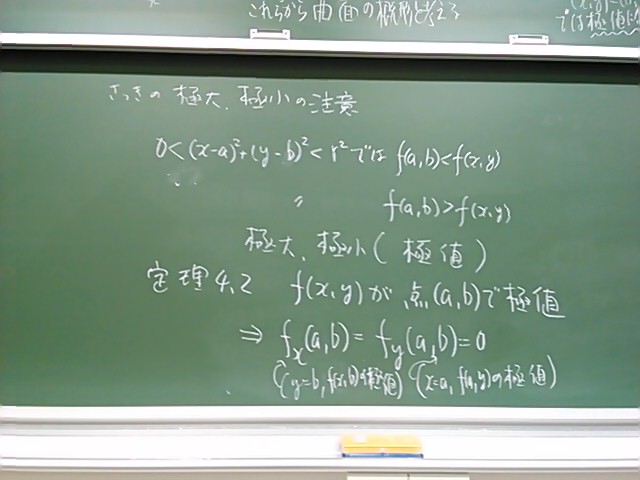 これらから曲面の概形を考える
では極値
さっきの極大、極小の注意
0<(x-a)²+(y-b)²<r²では f(a,b)<f(x,y)
〃 f(a,b)>f(x,y)
極大、極小(極値)
定理4.2 f(x,y)が点(a,b)で極値
⇒ fₓ(a,b)=f_y(a,b)=0
(y=b, f(x,b)の極値) (x=a, f(a,y)の極値)